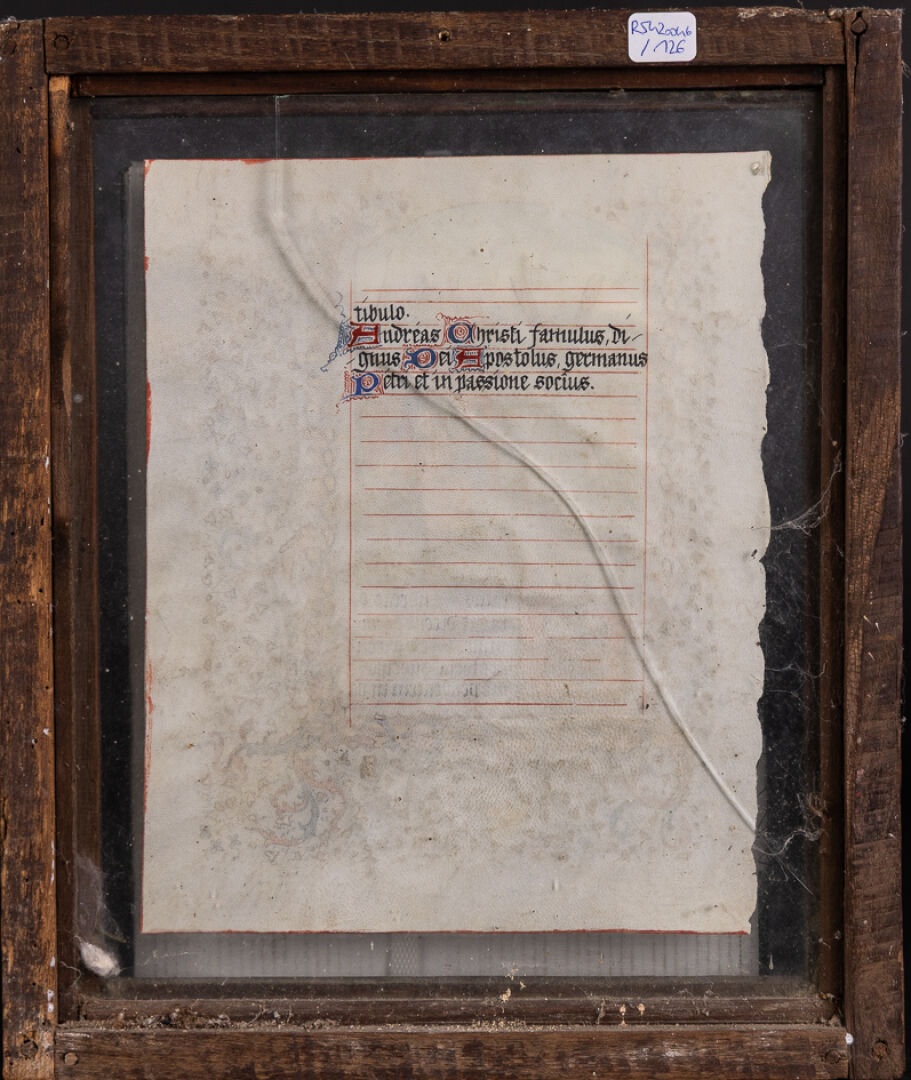 R542006
/126
tibulo.
Andreas Christi famulus, di-
gnus Dei Apostolus, germanus
Petri et in passione socius.